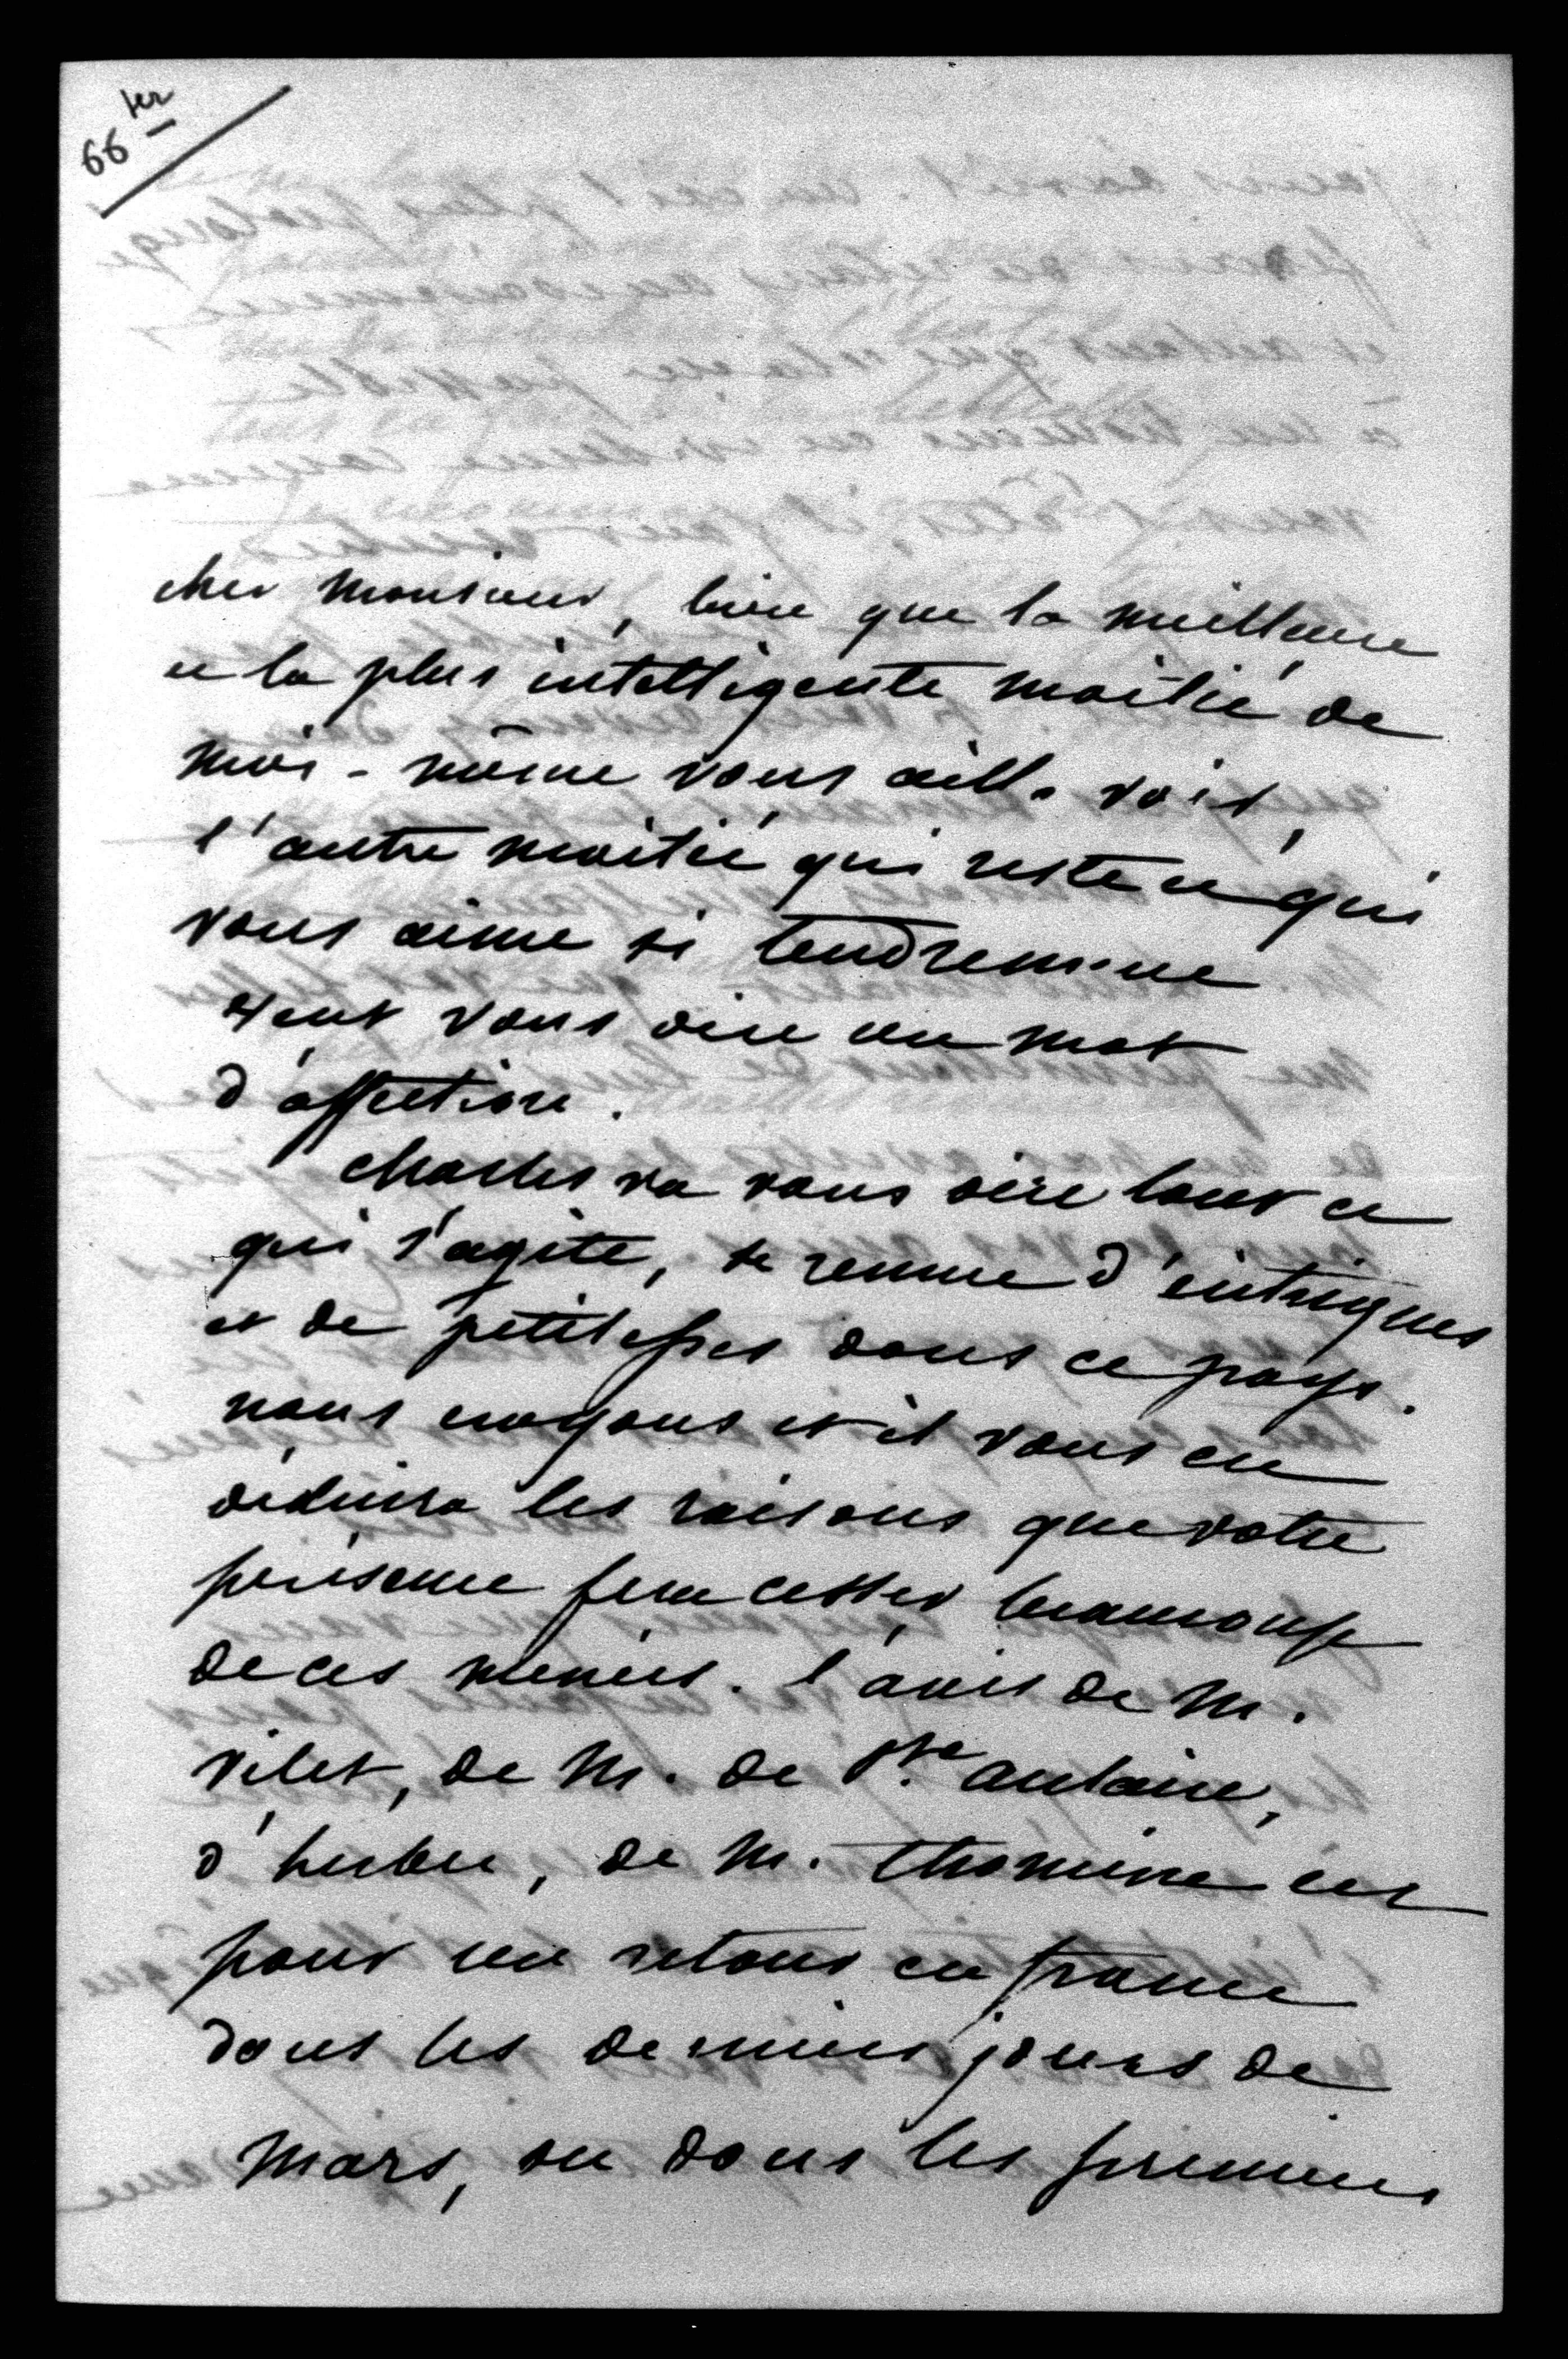 66 ter
cher monsieur, bien que la meilleure
et la plus intelligente moitié de
moi-même vous aille voir,
l'autre moitié qui reste et qui
vous aime si tendrement
veut vous dire un mot
d'affection.
Charles va vous dire tout ce
qui s'agite, se remue d'intrigues
et de petitesses dans ce pays.
nous croyons et il vous en
déduira les raisons que votre
présence fera cesser beaucoup
de ces menées. l'avis de M.
Vitet, de M. de Ste Aulaire,
d'hebert, de M. Thomine est
pour un retour en france
dans les derniers jours de
Mars, ou dans les premiers